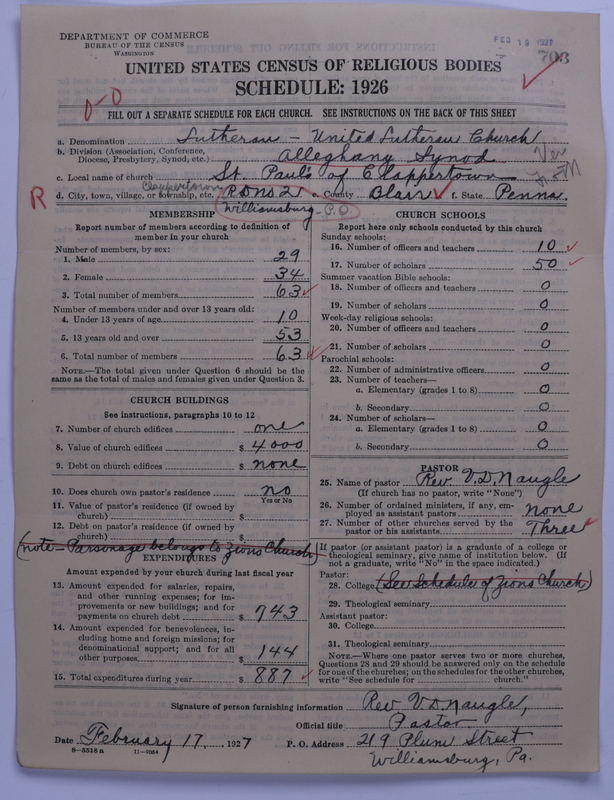 DEPARTMENT OF COMMERCE
BUREAU OF THE CENSUS
WASHINGTON
FEB 19 1927
703
UNITED STATES CENSUS OF RELIGIOUS BODIES
SCHEDULE: 1926
0-0
FILL OUT A SEPARATE SCHEDULE FOR EACH CHURCH. SEE INSTRUCTIONS ON THE BACK OF THIS SHEET
a. Denomination Lutheran - United Lutheran Church
b. Division (Association, Conference, Diocese, Presbytery, Synod, etc.) Alleghany Synod
c. Local name of church St. Paul's of Clappertown
Clappertown
d. City, town, village, or township, etc. R.D. No 2 e. County Blair f. State Penna.
R
Williamsburg - P.O.
MEMBERSHIP
Report number of members according to definition of member in your church
Number of members, by sex:
1. Male 29
2. Female 34
3. Total number of members 63
Number of members under and over 13 years old:
4. Under 13 years of age 10
5. 13 years old and over 53
6. Total number of members 63
NOTE.—The total given under Question 6 should be the same as the total of males and females given under Question 3.
CHURCH BUILDINGS
See instructions, paragraphs 10 to 12
7. Number of church edifices one
8. Value of church edifices $ 4000
9. Debt on church edifices $ none
10. Does church own pastor's residence no
Yes or No
11. Value of pastor's residence (if owned by church) $
12. Debt on pastor's residence (if owned by church) $
(note - Parsonage belongs to Zions Church)
EXPENDITURES
Amount expended by your church during last fiscal year
13. Amount expended for salaries, repairs, and other running expenses; for improvements or new buildings; and for payments on church debt $ 743
14. Amount expended for benevolences, including home and foreign missions; for denominational support; and for all other purposes $ 144
15. Total expenditures during year $ 887
CHURCH SCHOOLS
Report here only schools conducted by this church
Sunday schools:
16. Number of officers and teachers 10
17. Number of scholars 50
Summer vacation Bible schools:
18. Number of officers and teachers 0
19. Number of scholars 0
Week-day religious schools:
20. Number of officers and teachers 0
21. Number of scholars 0
Parochial schools:
22. Number of administrative officers 0
23. Number of teachers—
a. Elementary (grades 1 to 8) 0
b. Secondary 0
24. Number of scholars—
a. Elementary (grades 1 to 8) 0
b. Secondary 0
PASTOR
25. Name of pastor Rev. V.D. Naugle
(If church has no pastor, write "None")
26. Number of ordained ministers, if any, employed as assistant pastors none
27. Number of other churches served by the pastor or his assistants Three
If pastor (or assistant pastor) is a graduate of a college or theological seminary, give name of institution below. (If not a graduate, write "No" in the space indicated.)
Pastor:
28. College (See Schedule of Zions Church)
29. Theological seminary
Assistant pastor:
30. College
31. Theological seminary
NOTE.—Where one pastor serves two or more churches, Questions 28 and 29 should be answered only on the schedule for one of the churches; on the schedules for the other churches, write "See schedule for church."
Signature of person furnishing information Rev V.D. Naugle,
Official title Pastor
Date February 17, 1927 P. O. Address 219 Plum Street
8-5518 a 11-9064 Williamsburg, Pa.